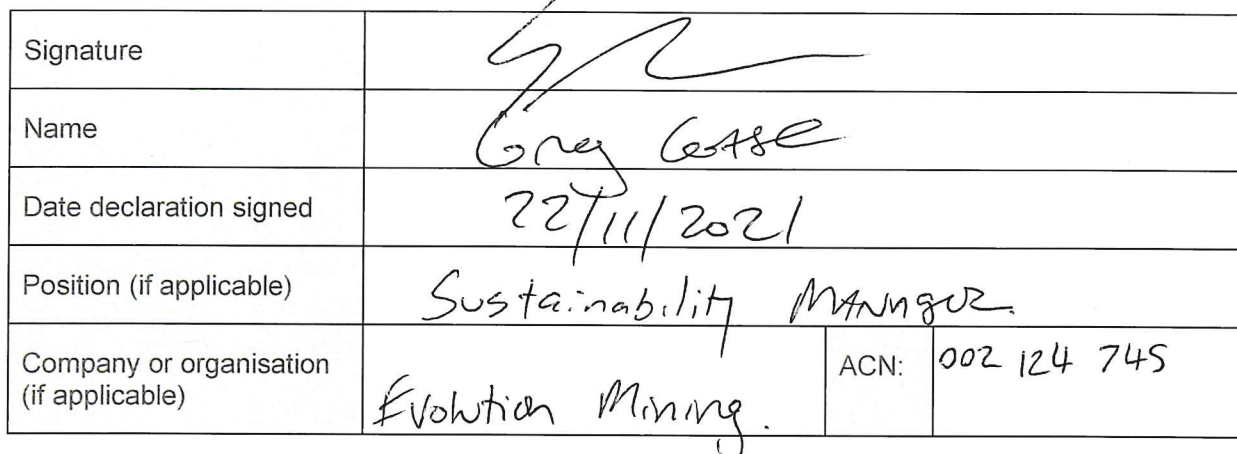 Signature
Name Greg
Date declaration signed 22/11/2021
Position (if applicable) Sustainability Manager.
Company or organisation
(if applicable) Evolution Mining. ACN: 002 124 745